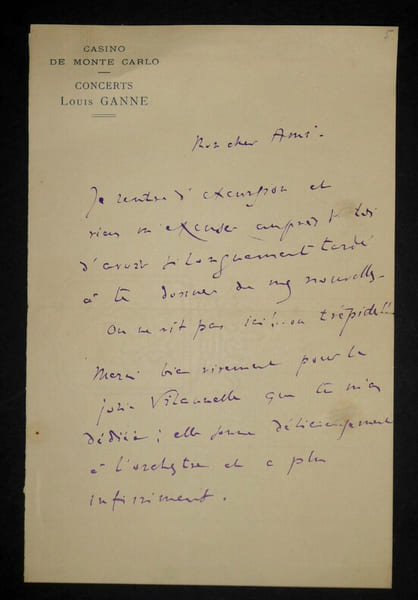 5.
CASINO
DE MONTE CARLO
CONCERTS
LOUIS GANNE
Mon cher Ami.
Je rentre d'excursion et
viens m'excuser auprès d toi
d'avoir si longuement tardé
à te donner de mes nouvelles.
On ne vit pas ici!.. on trépide!!!
Merci bien vivement pour la
jolie Vilannelle que tu m'as
dédiée ; elle sonne délicieusement
à l'orchestre et a plu
infiniment.